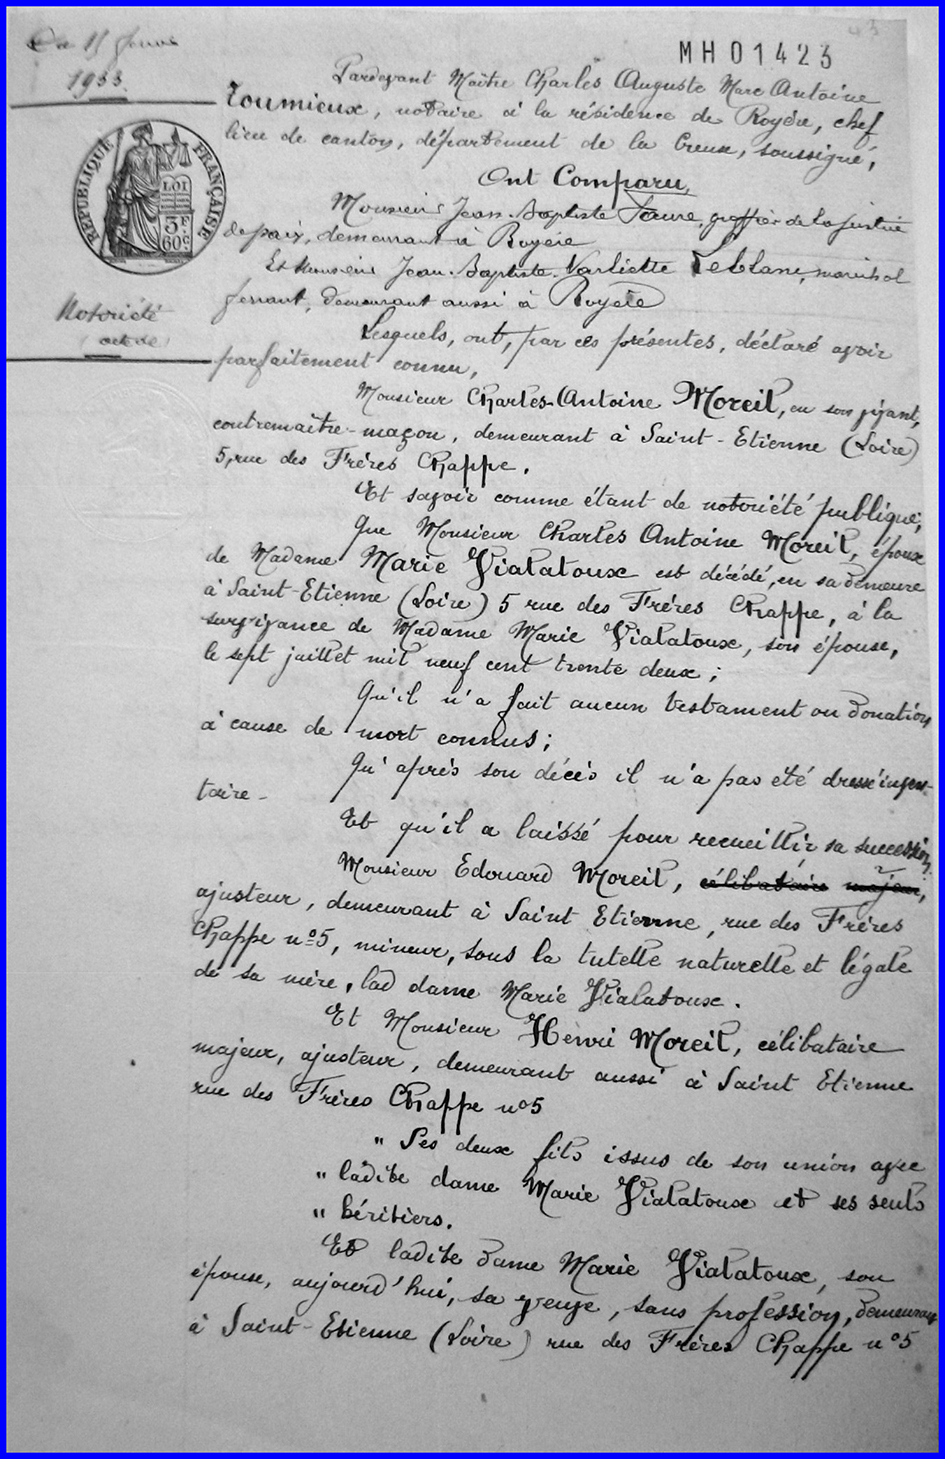 43
MH01423
1933
Pardevant Maître Charles Auguste Marc Antoine
Toumieux, notaire à la résidence de Royère, chef
lieu de canton, département de la Creuse, soussigné,
RÉPUBLIQUE FRANÇAISE
LOI
3F
60c
Ont Comparu
Monsieur Jean-Baptiste Faure, greffier de la justice
de paix, demeurant à Royère
Et Monsieur Jean-Baptiste Leblanc, maréchal
ferrant, demeurant aussi à Royère
Notoriété
(acte de)
Lesquels, ont, par ces présentes, déclaré avoir
parfaitement connu,
Monsieur Charles-Antoine Moreil, en son vivant,
contremaître-maçon, demeurant à Saint-Etienne (Loire)
5, rue des Frères Chappe.
Et savoir comme étant de notoriété publique;
Que Monsieur Charles Antoine Moreil, époux
de Madame Marie Vialatoux est décédé, en sa demeure
à Saint-Etienne (Loire) 5 rue des Frères Chappe, à la
survivance de Madame Marie Vialatoux, son épouse,
le sept juillet mil neuf cent trente deux;
Qu'il n'a fait aucun testament ou donation
à cause de mort connus;
Qu'après son décès il n'a pas été dressé inven-
taire -
Et qu'il a laissé pour recueillir sa succession,
Monsieur Edouard Moreil, célibataire majeur,
ajusteur, demeurant à Saint Etienne, rue des Frères
Chappe nº5, mineur, sous la tutelle naturelle et légale
de sa mère, lad dame Marie Vialatoux.
Et Monsieur Henri Moreil, célibataire
majeur, ajusteur, demeurant aussi à Saint Etienne
rue des Frères Chappe nº5
" Ses deux fils issus de son union avec
" ladite dame Marie Vialatoux et ses seuls
" héritiers.
Et ladite dame Marie Vialatoux, son
épouse, aujourd'hui, sa veuve, sans profession, demeurant
à Saint-Etienne (Loire) rue des Frères Chappe nº5